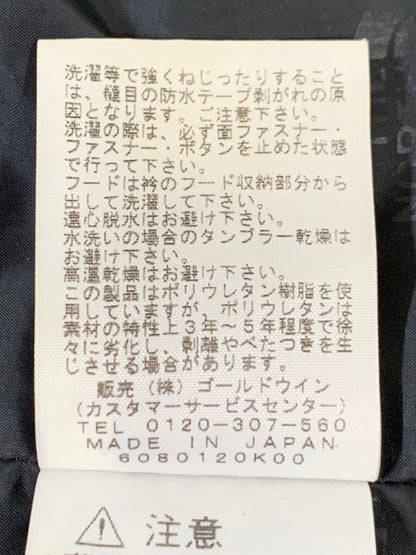 洗濯等で強くねじったりすること
は、縫目の防水テープ剥がれの原
因となります。ご注意下さい。
洗濯の際は、必ず面ファスナー・
ファスナー・ボタンを止めた状態
で行って下さい。
フードは衿のフード収納部分から
出して洗濯して下さい。
遠心脱水はお避け下さい。
水洗いの場合のタンブラー乾燥は
お避け下さい。
高温乾燥はお避け下さい。
この製品はポリウレタン樹脂を使
用していますが、ポリウレタンは
素材の特性上3年～5年程度で徐
々に劣化し、剥離やべたつきを生
じさせる場合があります。
販売（株）ゴールドウイン
(カスタマーサービスセンター)
TEL 0120-307-560
MADE IN JAPAN
6080120K00
注意